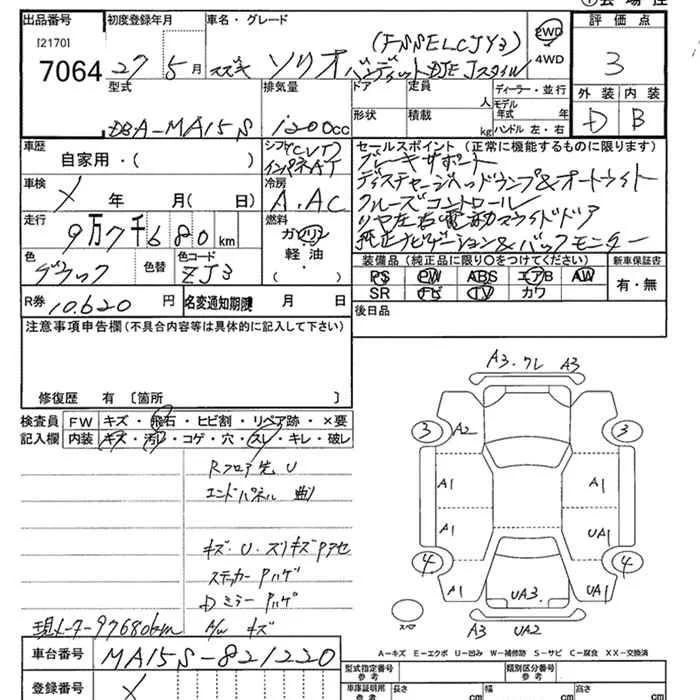 出品番号 初度登録年月 車名・グレード 評価点
[2170]
7064 27年 5月 スズキ ソリオ バンディット DJE Jスタイル
2WD
4WD
3
型式 排気量 ドア 定員 人 ディーラー・並行 外装 内装
形状 積載 kg モデル年式 年
ハンドル 左・右
DBA-MA15S 1200cc D B
車歴 自家用・( ) シフト CVT インパネAT
セールスポイント (正常に機能するものに限ります)
ブレーキサポート
ディスチャージヘッドランプ&オートライト
クルーズコントロール
リヤ左右電動スライドドア
純正ナビゲーション&バックモニター
車検 X 年 月( 日) 冷房 A.AC
走行 9万7千680km 燃料 ガソリン 軽油・( )
色 ブラック 色替 色コード ZJ3
装備品 (純正品に限り○をつけてください) 新車保証書
PS PW ABS エアB AW 有・無
SR ナビ TV カワ
R券 10.620円 名変通知期限 月 日
後日品
注意事項申告欄(不具合内容等は具体的に記入して下さい)
修復歴 有 〔箇所 〕
検査員 FW キズ・飛石・ヒビ割・リペア跡・×要
記入欄 内装 キズ・汚レ・コゲ・穴・スレ・キレ・破レ
Rフロア先 U
エンドパネル 曲リ
キズ・U・スリキズ
ステッカーハゲ
Dミラー ハゲ
A/W キズ
現メーター97680km
A3.ワレ A3
3 A2 3
A1 A1
A1 UA1
4 4
A1 UA3 UA1
スペア
A3 UA2
A-キズ E-エクボ U-凹み W-補修跡 S-サビ C-腐食 XX-交換済
車台番号 MA15S-821220
登録番号 X
型式指定番号 参考 類別区分番号 参考
車庫証明用 参考 長さ cm 幅 cm 高さ cm